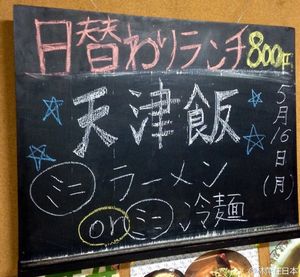 日替わりランチ 800円
天津飯
5月16日(月)
ミニ ラーメン
or ミニ 冷麺